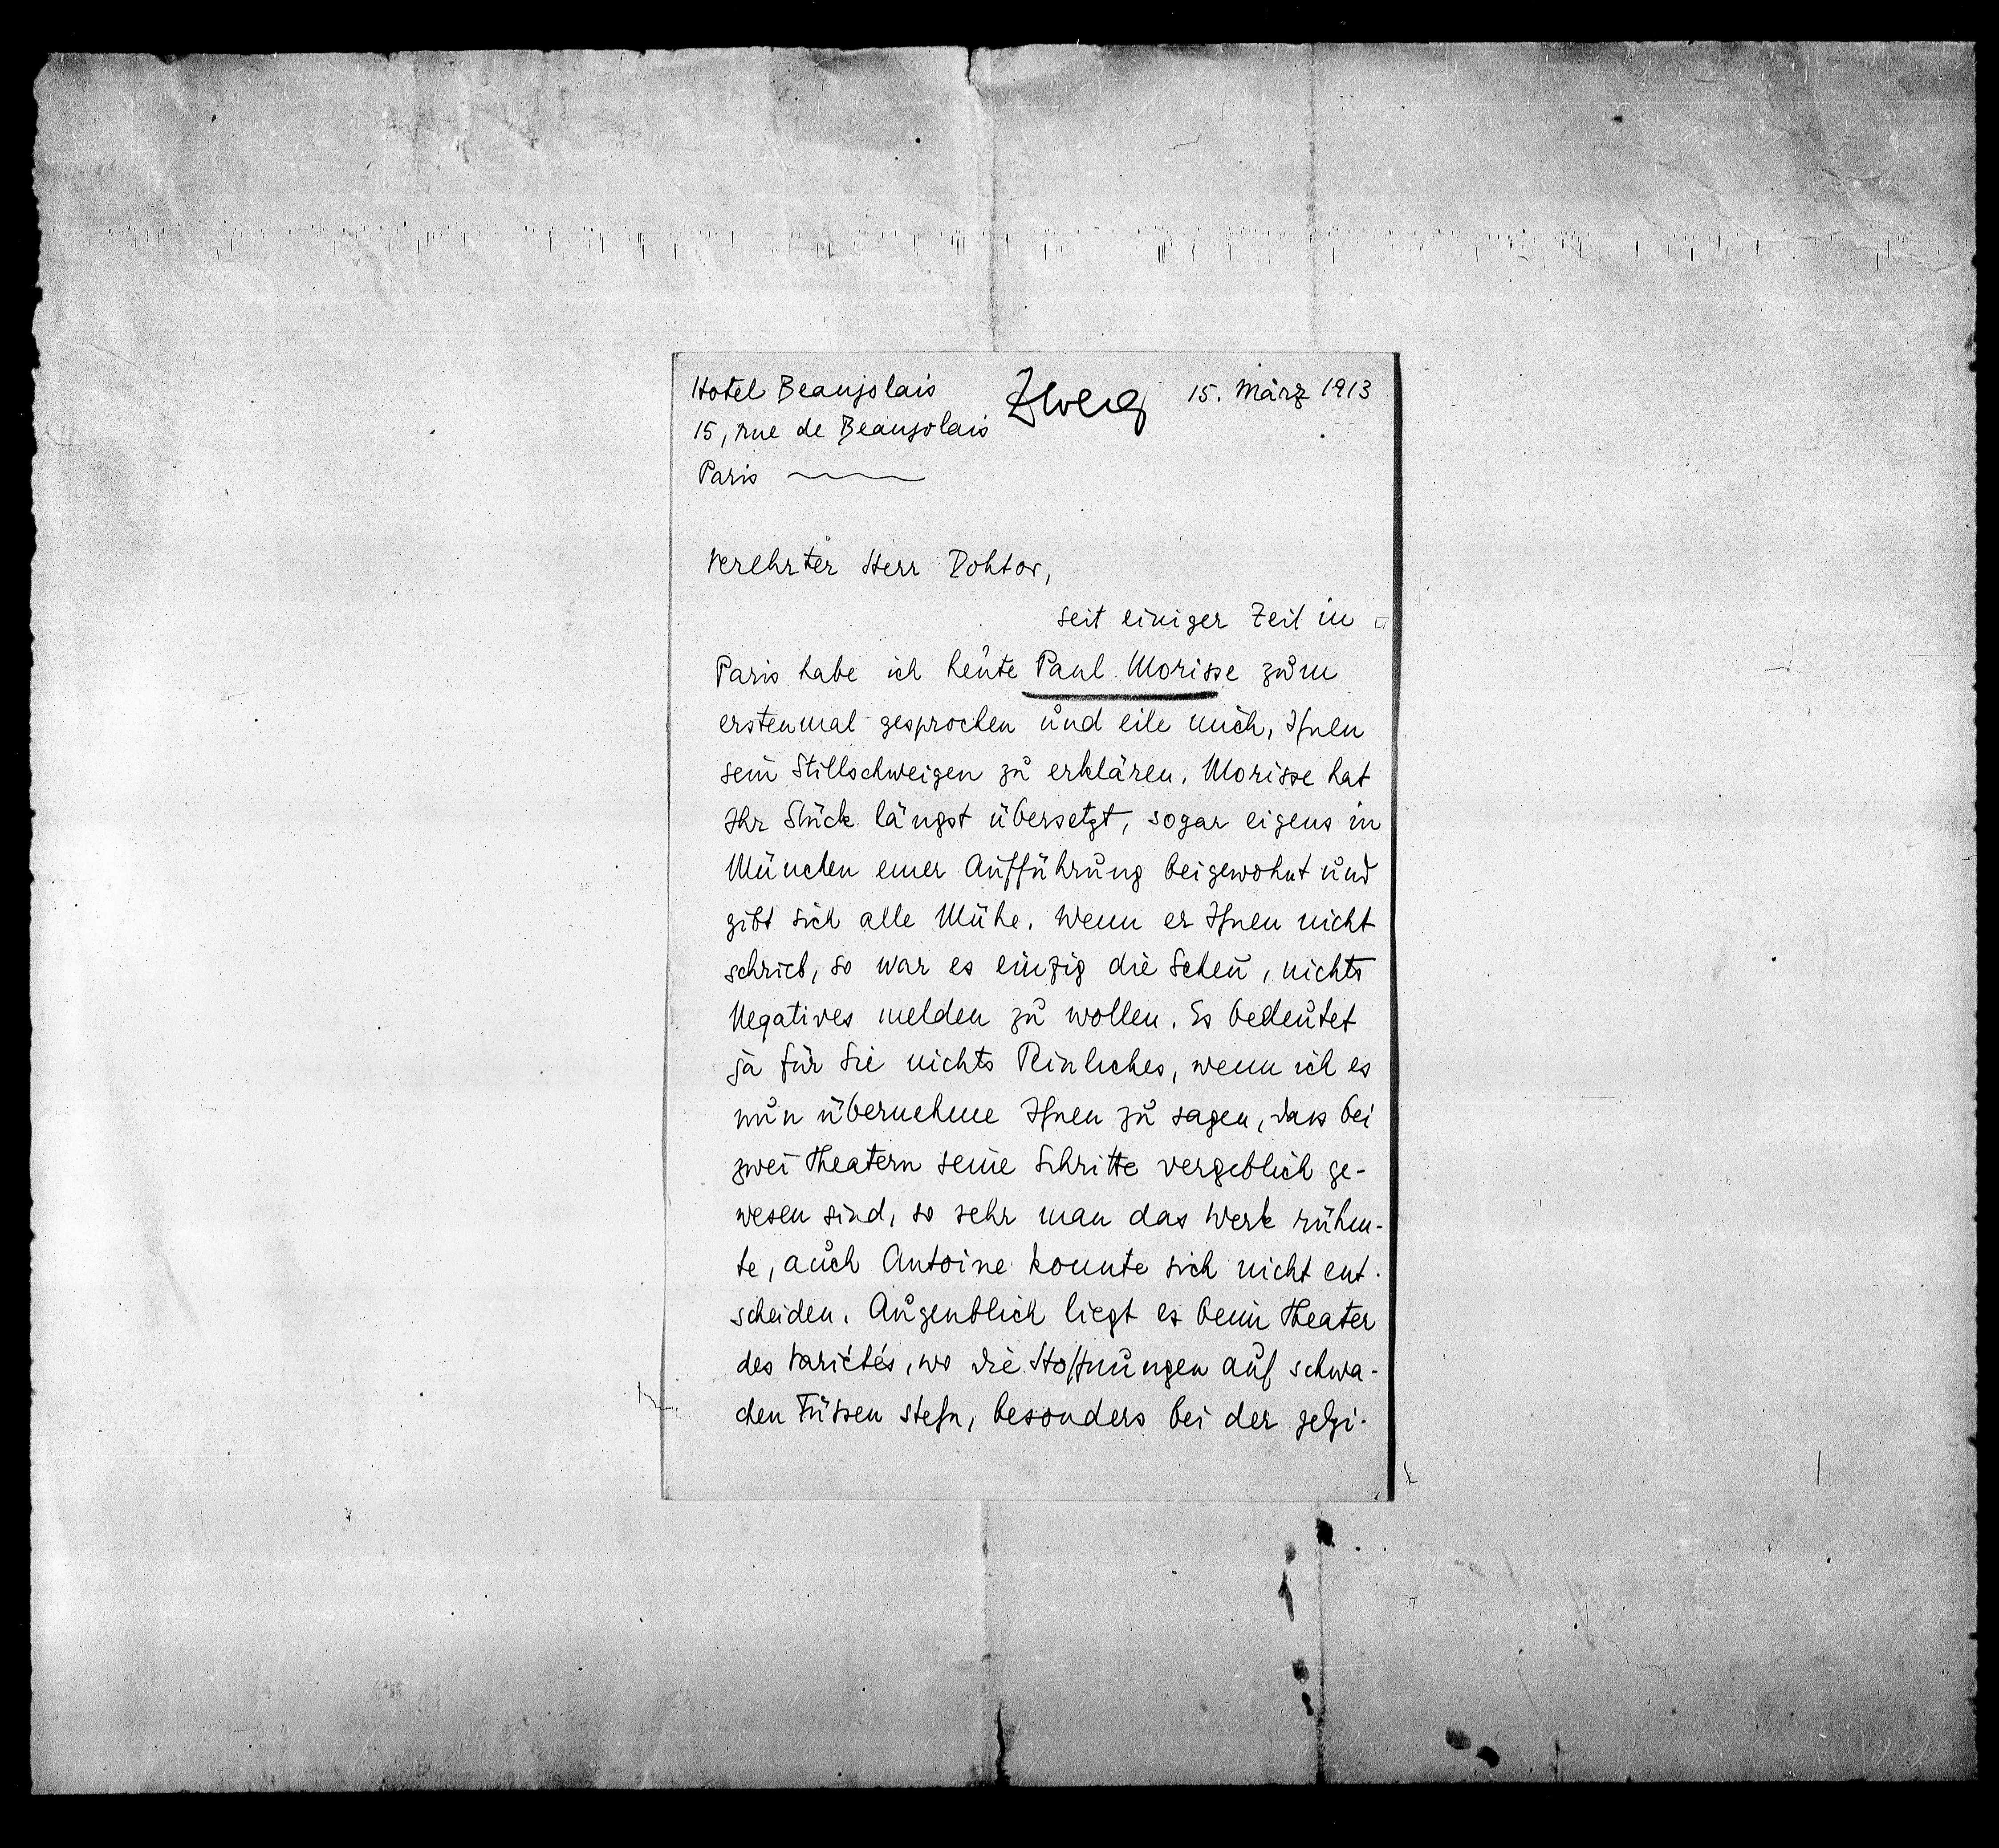 Hotel Beaujolais
15, rue de Beaujolais
Paris
Zweig
15. März 1913
Verehrter Herr Doktor,
seit einiger Zeit in
Paris habe ich heute Paul Morisse zum
erstenmal gesprochen und eile mich, Ihnen
sein Stillschweigen zu erklären. Morisse hat
Ihr Stück längst übersetzt, sogar eigens in
München einer Aufführung beigewohnt und
gibt sich alle Mühe. Wenn er Ihnen nicht
schrieb, so war es einzig die Scheu, nichts
Negatives melden zu wollen. Es bedeutet
ja für Sie nichts Peinliches, wenn ich es
nun übernehme Ihnen zu sagen, dass bei
zwei Theatern seine Schritte vergeblich ge-
wesen sind, so sehr man das Werk rühm-
te, auch Antoine konnte sich nicht ent-
scheiden. Augenblich liegt es beim Theater
des Variétés, wo die Hoffnungen auf schwa-
chen Füssen stehn, besonders bei der